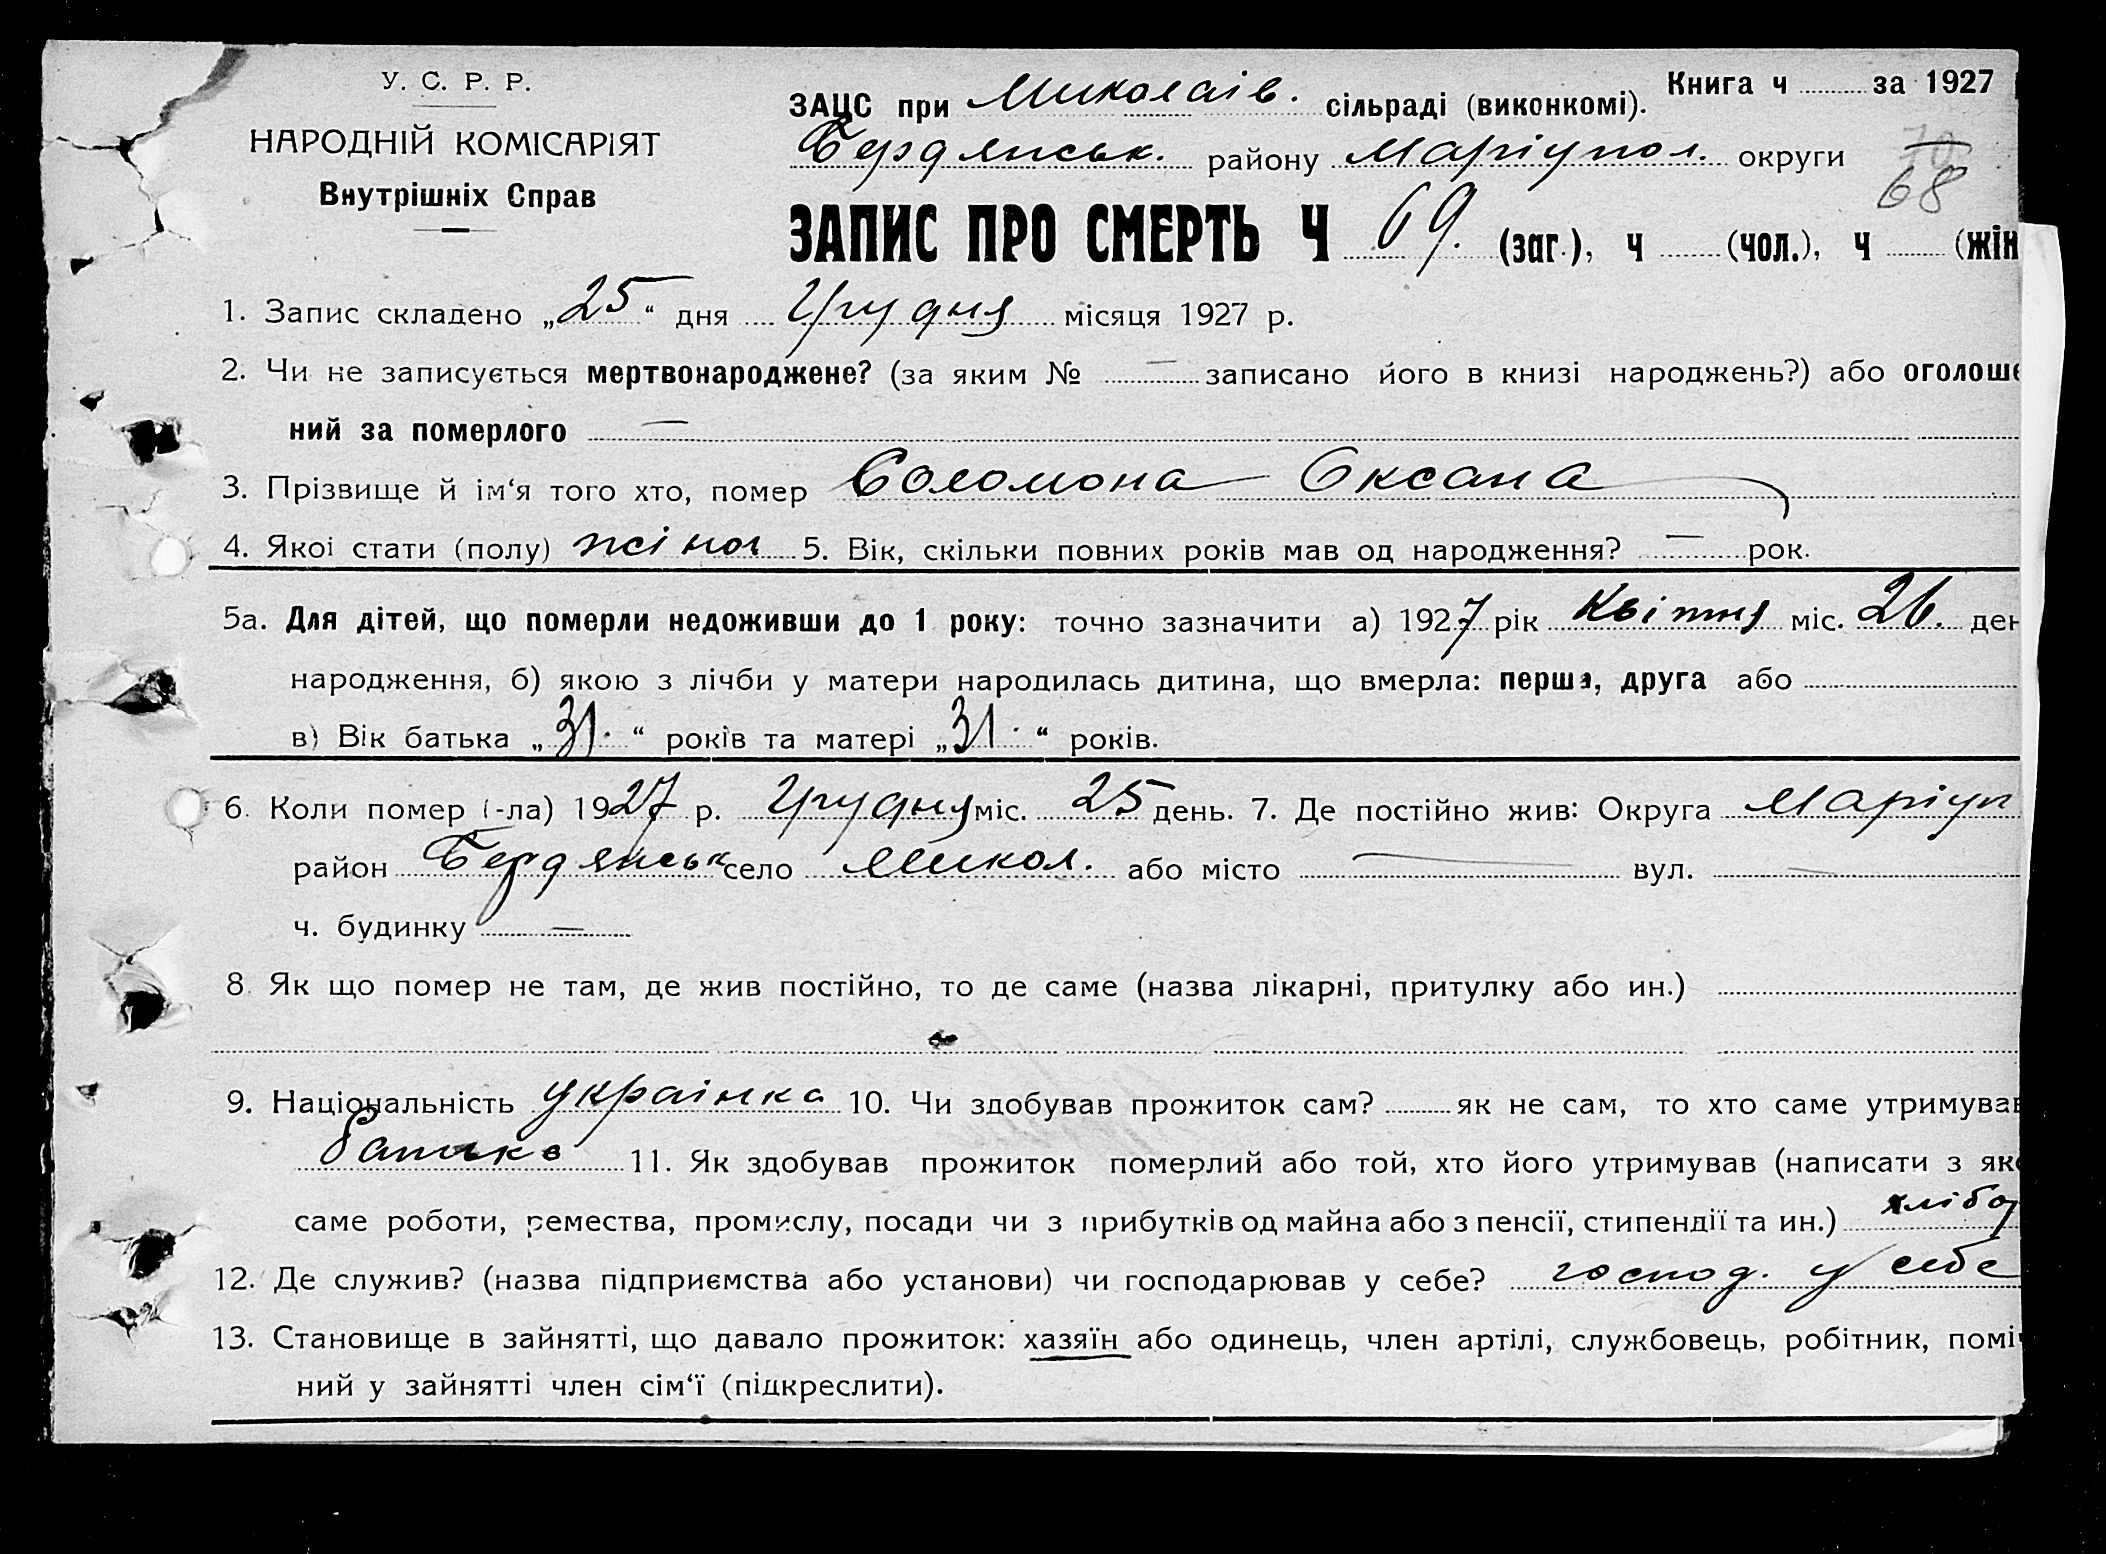 У. С. Р. Р.
НАРОДНІЙ КОМІСАРІЯТ
Внутрішніх Справ
Книга ч за 1927
ЗАЦС при Миколаів. сільраді (виконкомі).
Бердянськ. району Маріупол. округи
70
68
ЗАПИС ПРО СМЕРТЬ Ч 69. (заг.), ч (чол.), ч (жін
1. Запис складено „25“ дня Грудня місяця 1927 р.
2. Чи не записується мертвонароджене? (за яким № — записано його в книзі народжень?) або оголоше
ний за померлого —
3. Прізвище й ім‘я того хто, помер Соломона Оксана
4. Якоі стати (полу) жіноч 5. Вік, скільки повних років мав од народження? — рок.
5а. Для дітей, що померли недоживши до 1 року: точно зазначити а) 1927 рік Квітня міс. 26. ден
народження, б) якою з лічби у матери народилась дитина, що вмерла: перша, друга або
в) Вік батька „31.“ років та матері „31.“ років.
6. Коли помер (-ла) 1927 р. Грудня міс. 25 день. 7. Де постійно жив: Округа Маріуп
район Бердянськ село Микол. або місто — вул. —
ч. будинку —
8. Як що помер не там, де жив постійно, то де саме (назва лікарні, притулку або ин.)
9. Національність украінка 10. Чи здобував прожиток сам? як не сам, то хто саме утримував
батько 11. Як здобував прожиток померлий або той, хто його утримував (написати з яко
саме роботи, ремества, промислу, посади чи з прибутків од майна або з пенсії, стипендії та ин.) хлібор
12. Де служив? (назва підприємства або установи) чи господарював у себе? господ. у себе
13. Становище в зайнятті, що давало прожиток: хазяїн або одинець, член артілі, службовець, робітник, поміч
ний у зайнятті член сім‘ї (підкреслити).